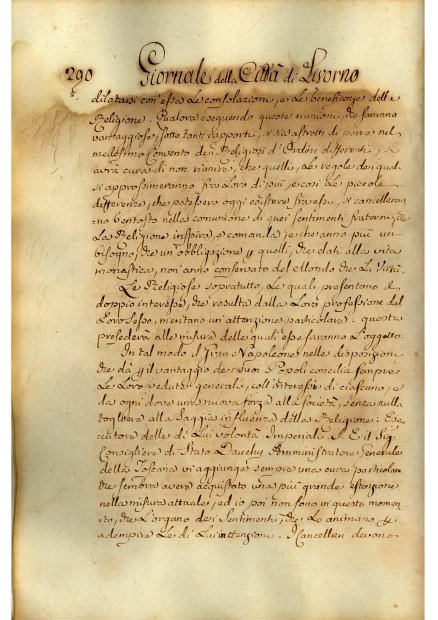 290 Giornale della Città di Livorno
dilatarsi con essa Le consolazioni, e Le beneficenze della
Religione. Qualora eseguendo queste riunioni, che saranno
vantaggiose, sotto tanti rapporti, si sia astretti di porre nel
medesimo Convento dei Religiosi d'Ordini differenti, si
avrà cura di non riunire, che quelli, Le regole dei quali
si approssimeranno fra Loro di più, e così Le piccole
differenze, che potessero oggi esistere fra essi, si cancelleran
no bentosto nella comunione di quei sentimenti fraterni, che
La Religione inspira, e comanda, e che anno più un
bisogno, che un obbligazione quelli, che dati alla vita
monastica, non anno conservato del Mondo che Le Virtù
Le Religiose sopratutto, Le quali presentano il
doppio interesse, che resulta dalla Loro professione dal
Loro Sesso, meritano un'attenzione particolare: questa
presederà alle misure delle quali esse faranno L'oggetto.
In tal modo il Napoleone nelle disposizioni
che dà il vantaggio dei suoi Popoli concilia sempre
Le Loro vedute generali, coll'interesse di ciascuno, e
da ogni dove una nuova forza alla società, senza nulla
togliere alla Saggia influenza della Religione: Ese
cutore delle di Lui volontà Imperiali S. E. il Sig.
Consigliere di Stato Dauchy Amministratore Generale
della Toscana vi aggiunge sempre una cura particolare
che sembra avere acquistato una più grande estensione
nella misura attuale, ed io poi non sono in questo momen
to, che L'organo dei Sentimenti, che Lo animano
adempire Le di Lui intenzioni. I Cancellieri devono